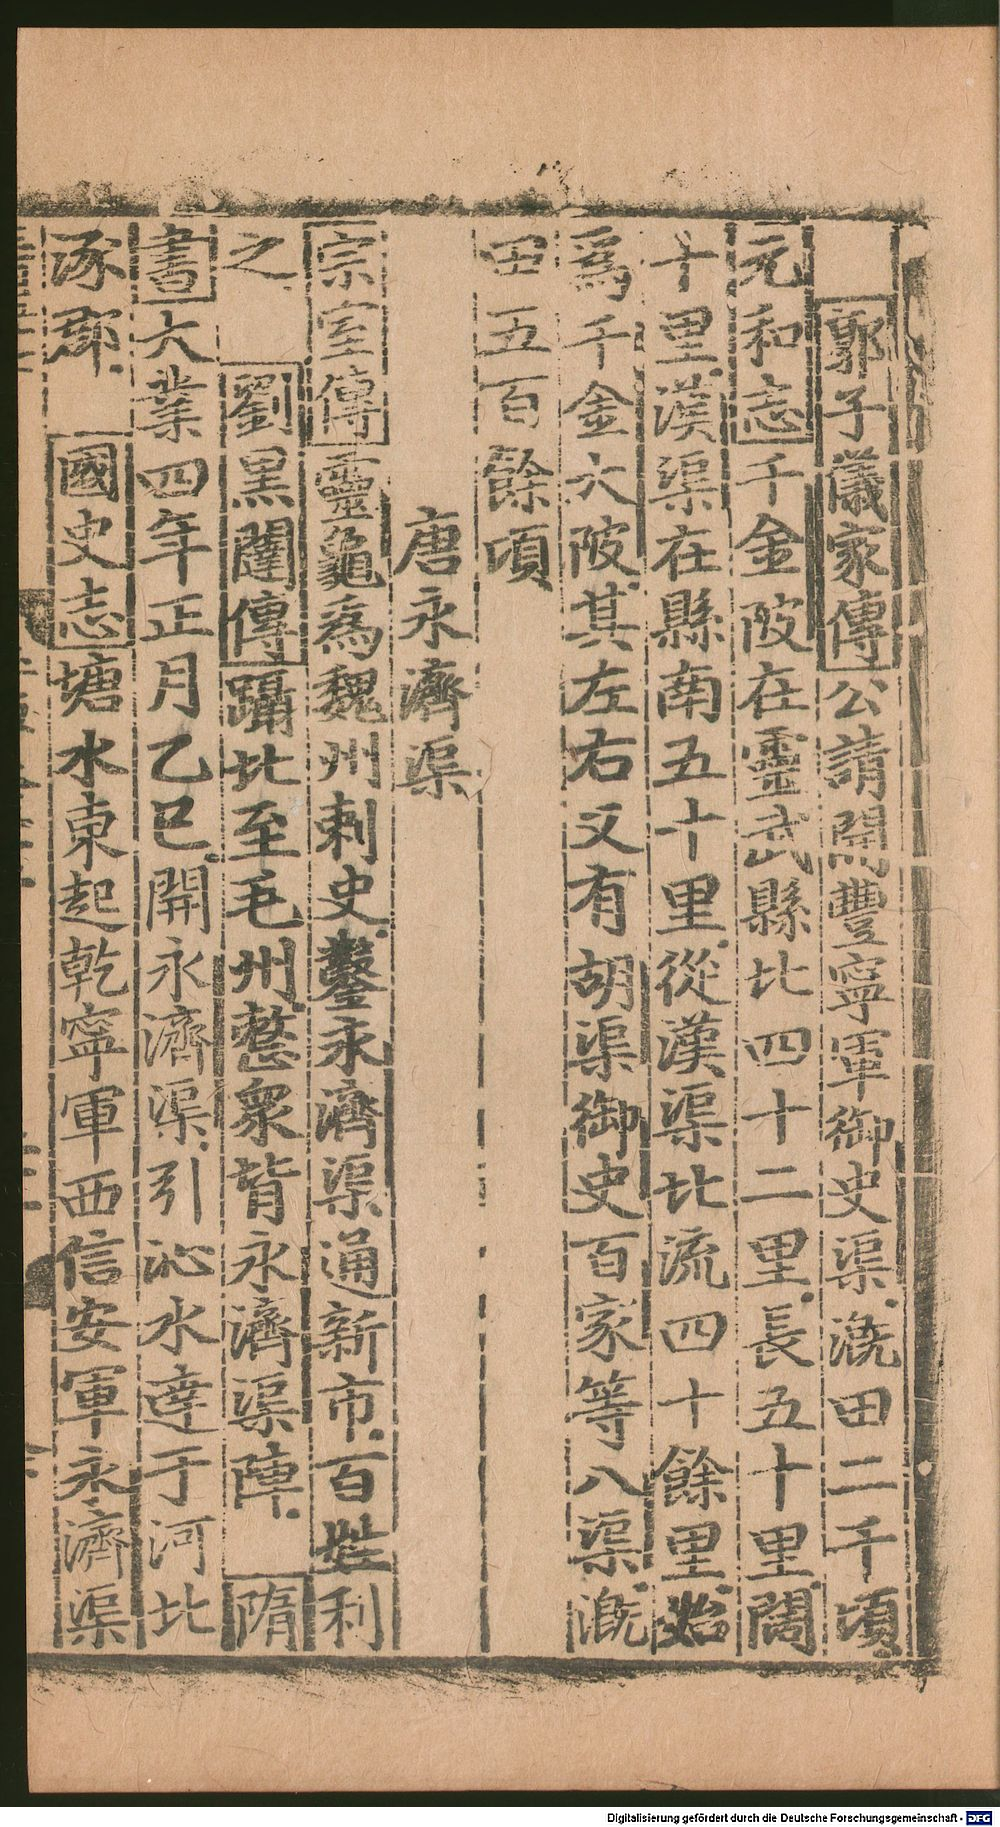 郭子儀家傳公請開豐寧軍御史渠漑田二千頃
元和志千金陂在靈武縣北四十二里長五十里闊
十里漢渠在縣南五十里從漢渠北流四十餘里始
爲千金大陂其左右又有胡渠御史百家等八渠漑
田五百餘頃
唐永濟渠
宗室傳靈龜爲魏州刺史鑿永濟渠通新市百姓利
之 劉黑闥傳躡北至毛州整衆背永濟渠陣 隋
書大業四年正月乙巳開永濟渠引沁水達于河北
涿郡 國史志塘水東起乾寧軍西信安軍永濟渠
Digitalisierung gefördert durch die Deutsche Forschungsgemeinschaft - DFG